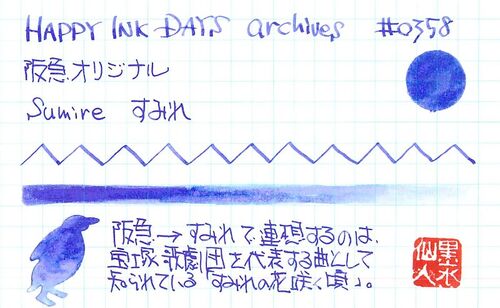 HAPPY INK DAYS archives #0358
阪急オリジナル
Sumire すみれ
阪急→すみれで連想するのは、
宝塚歌劇団を代表する曲として
知られている「すみれの花咲く頃」。
墨水
仙人